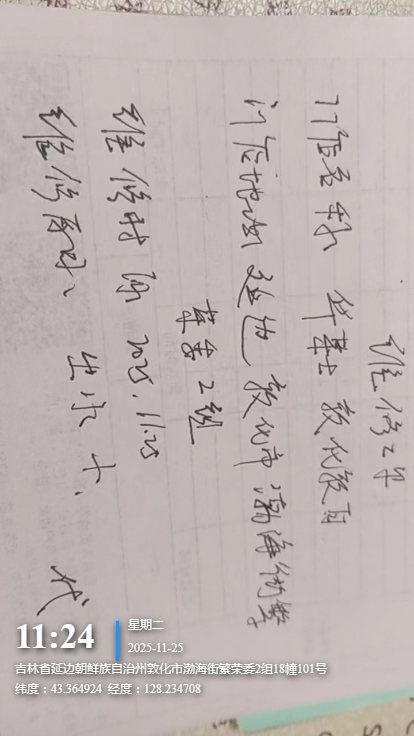 维修工单
门店名称 华莱士敦化
门店地址 延边敦化市渤海街繁
荣委2组
维修时间 2025.11.25
维修 出水
11:24
星期二
2025-11-25
吉林省延边朝鲜族自治州敦化市渤海街繁荣委2组18幢101号
纬度：43.364924 经度：128.234708